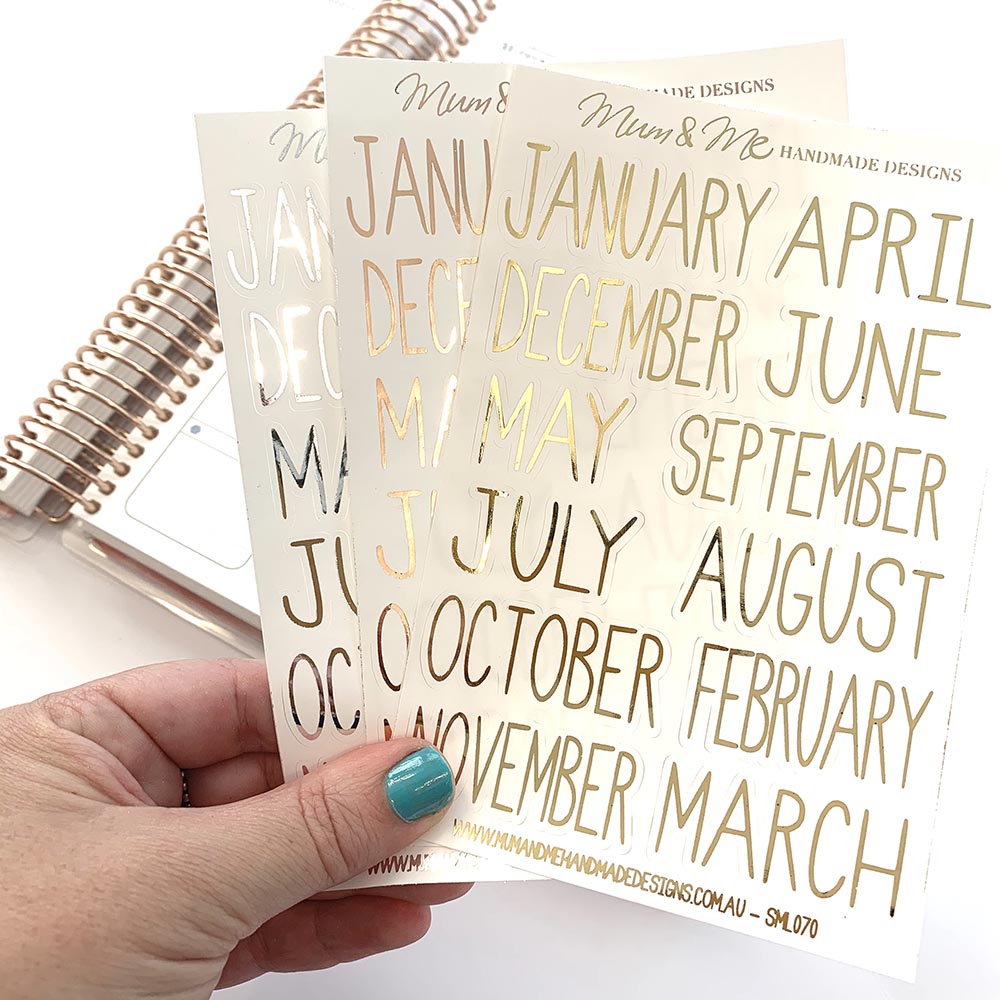 Mum & Me HANDMADE DESIGNS
JANUARY APRIL
DECEMBER JUNE
MAY SEPTEMBER
JULY AUGUST
OCTOBER FEBRUARY
NOVEMBER MARCH
WWW.MUMANDMEHANDMADEDESIGNS.COM.AU - SML070
Mum &
MADE DESIGNS
JANU
DECE
MA
J
O
WWW.M
M
JAN
DEC
MA
JU
OC